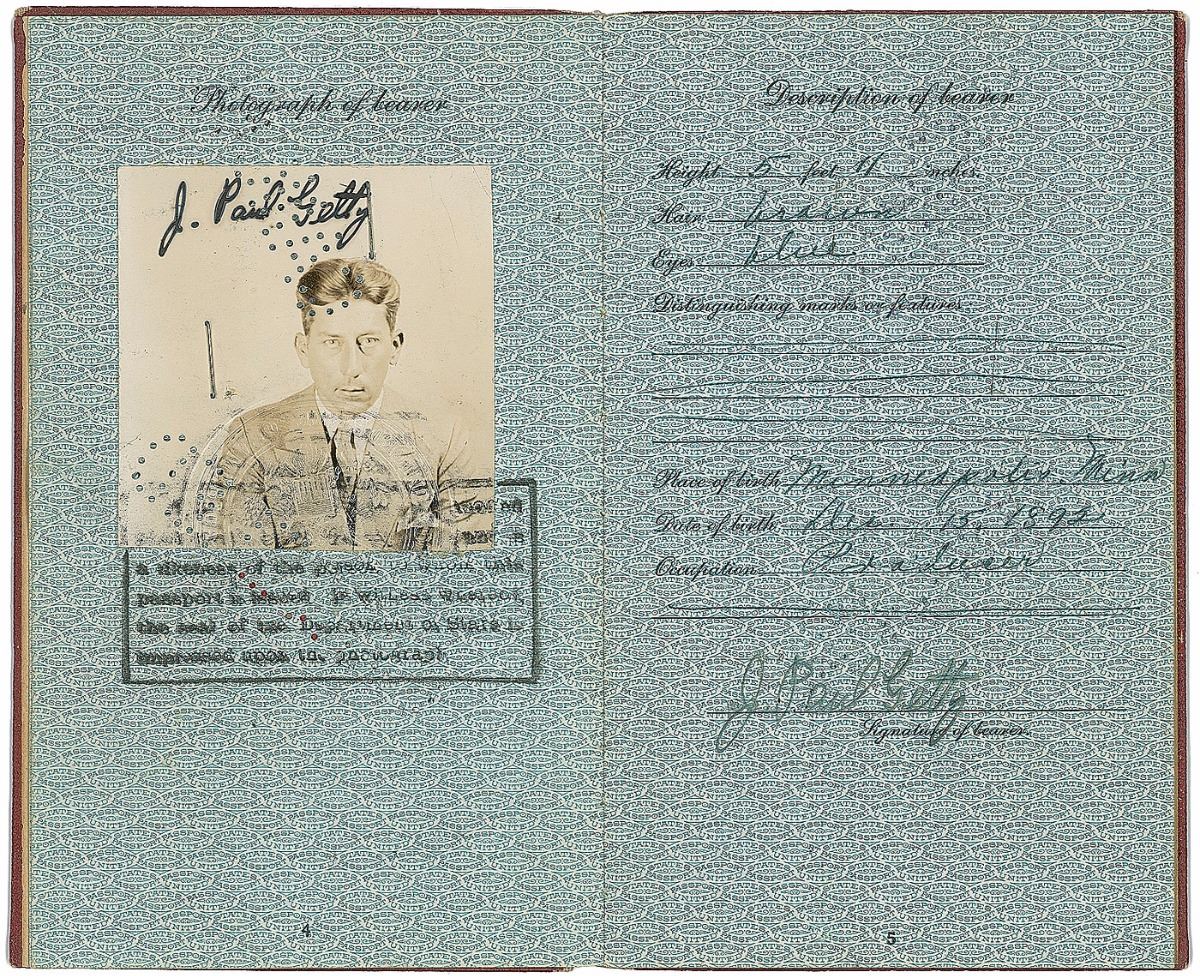 Photograph of bearer
J. Paul Getty
a likeness of the person to whom this
passport is issued. In witness whereof
the seal of the Department of State is
impressed upon the photograph
4
Description of bearer
Height 5 feet 11 inches.
Hair brown
Eyes blue
Distinguishing marks or features
Place of birth Minneapolis Minn
Date of birth Dec 15, 1892
Occupation Producer
J Paul Getty
Signature of bearer.
5